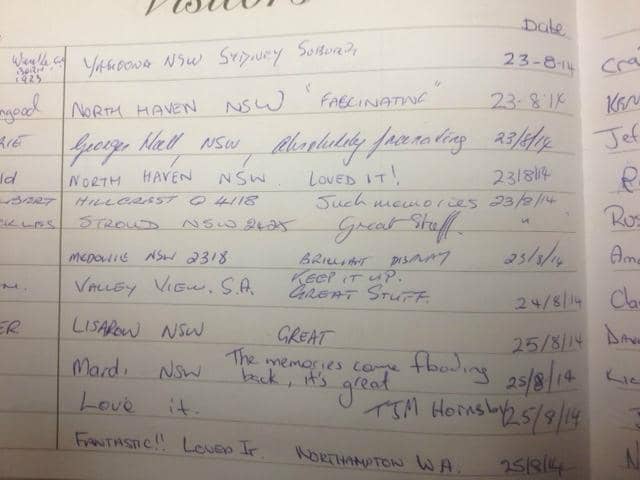 Visitors
Date
BORN 1923 YAGOONA NSW SYDNEY SUBURB 23-8-14 Cra
good NORTH HAVEN NSW "FACINATING" 23-8-14
RIE Georges Hall NSW Absolutely fascinating 23/8/14 Jef
ld NORTH HAVEN NSW. LOVED IT! 23/8/14 R
HILLCREST Q 4118 Such memories 23/8/14
STROUD NSW 2425 Great Stuff. " Ros
NSW 2318 BRILLIANT DISPLAY 23/8/14 Ama
KEEP IT UP.
M. VALLEY VIEW. S.A. GREAT STUFF. 24/8/14 Cla
ER LISAROW NSW GREAT 25/8/14 Dav
Mardi NSW The memories come flooding
back, it's great 25/8/14
Love it. TSM Hornsby 25/8/14
FANTASTIC!! LOVED IT. NORTHAMPTON WA. 25/8/14 N